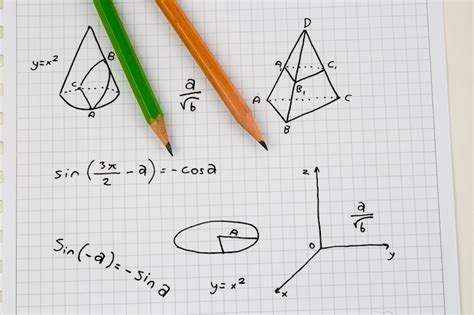 y=x²
B
C
A
a/√b
D
A₁
C₁
B₁
A
C
B
sin (3π/2 - a) = -cosa
z
a/√b
A
O
y
Sin(-a) = - sin a
y=x²
x